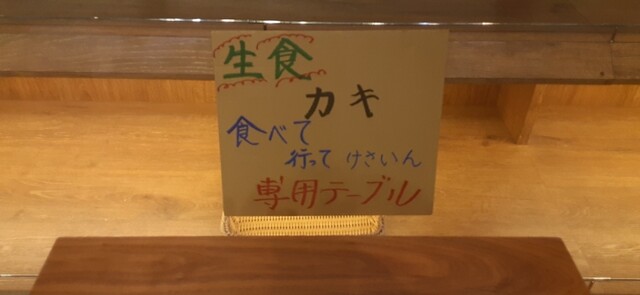 生食
カキ
食べて
行って けさいん
専用テーブル